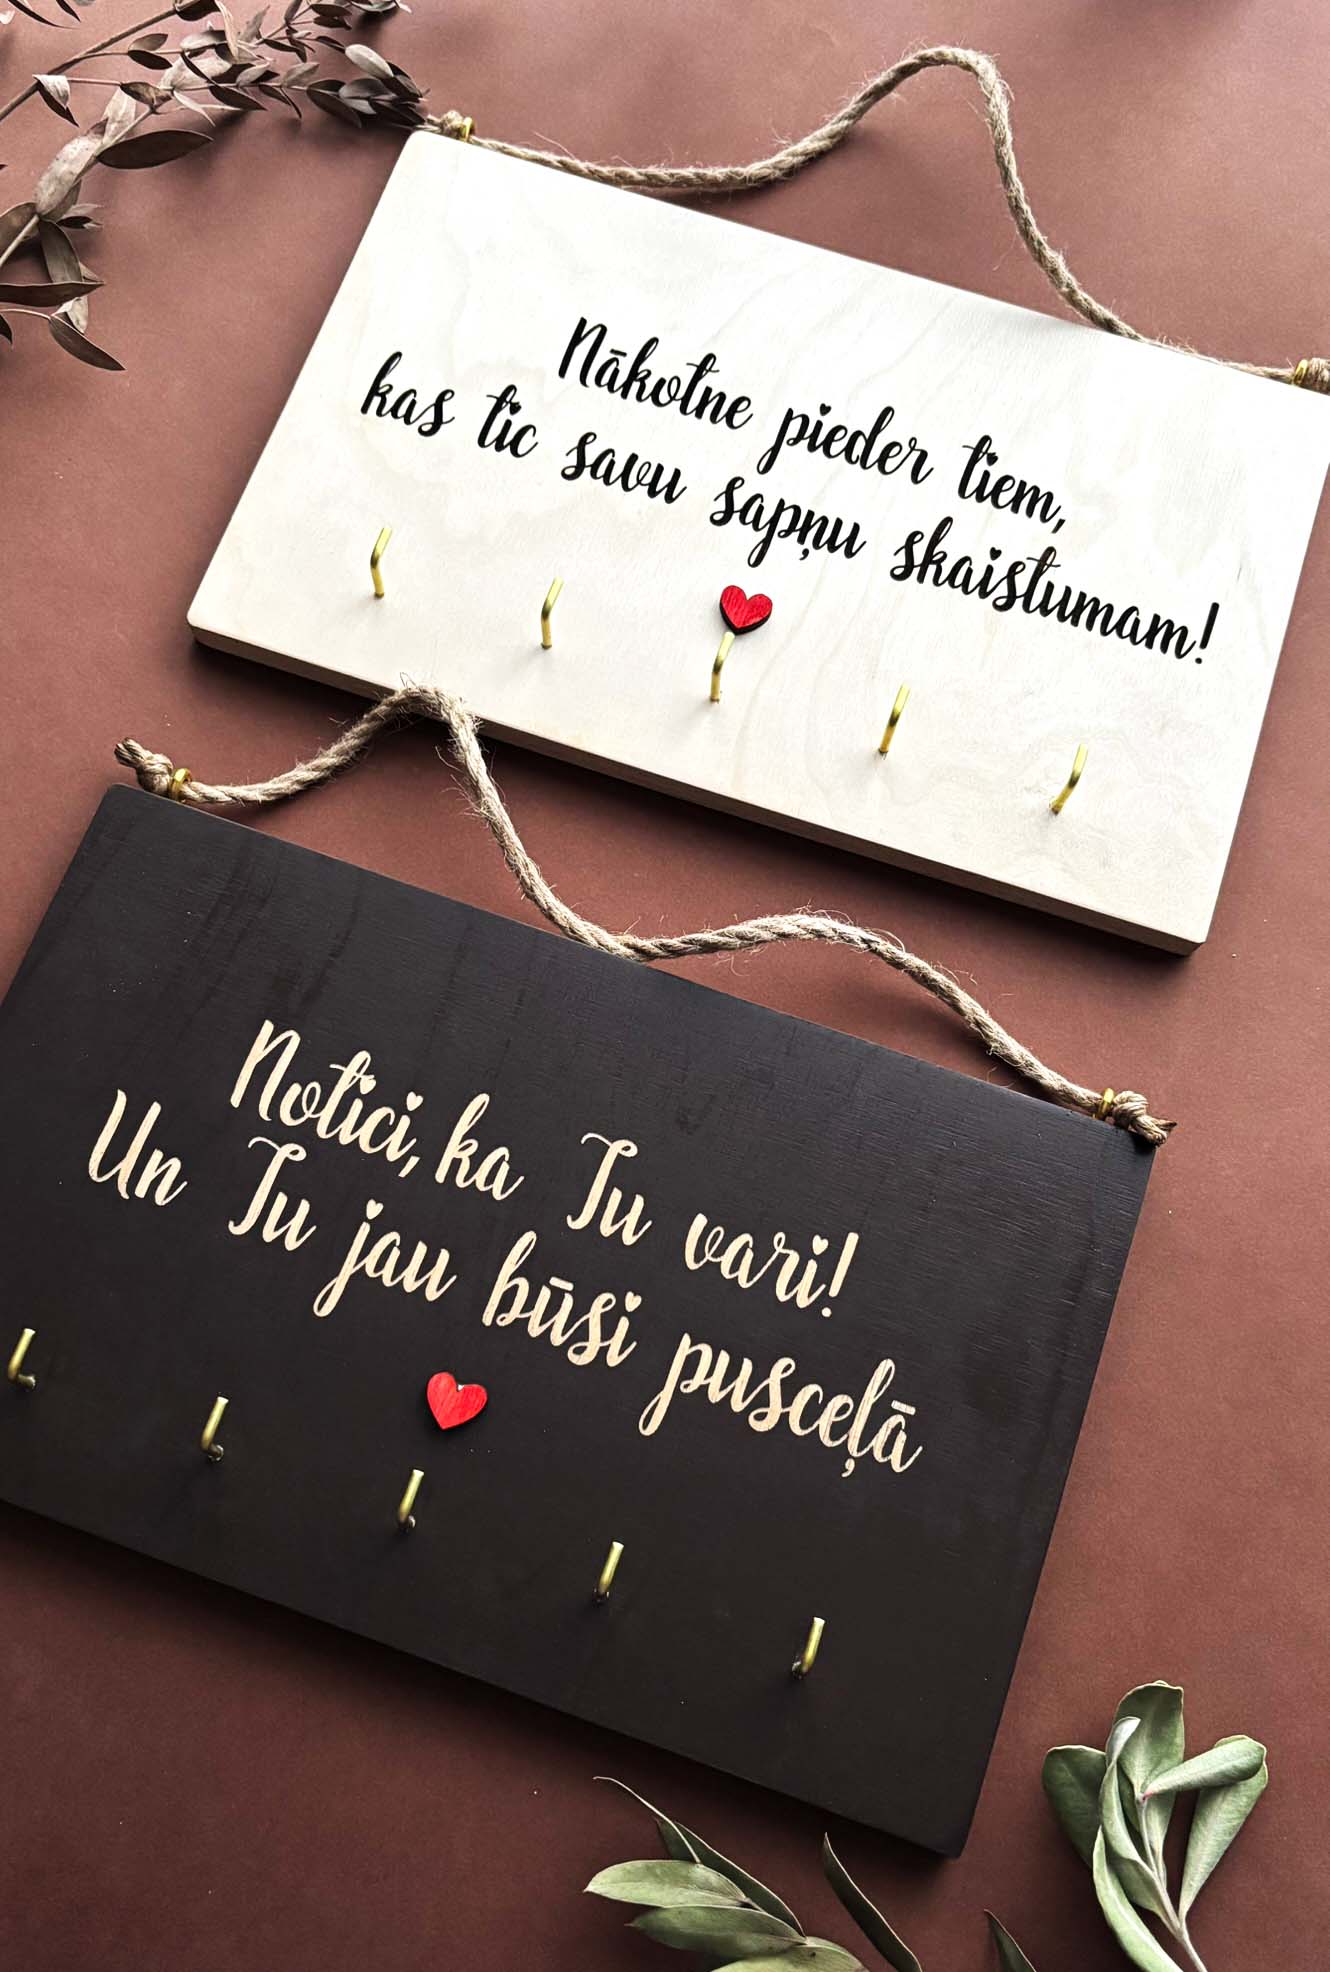 Nākotne pieder tiem,
kas tic savu sapņu skaistumam!
Notici, ka Tu vari!
Un Tu jau būsi pusceļā